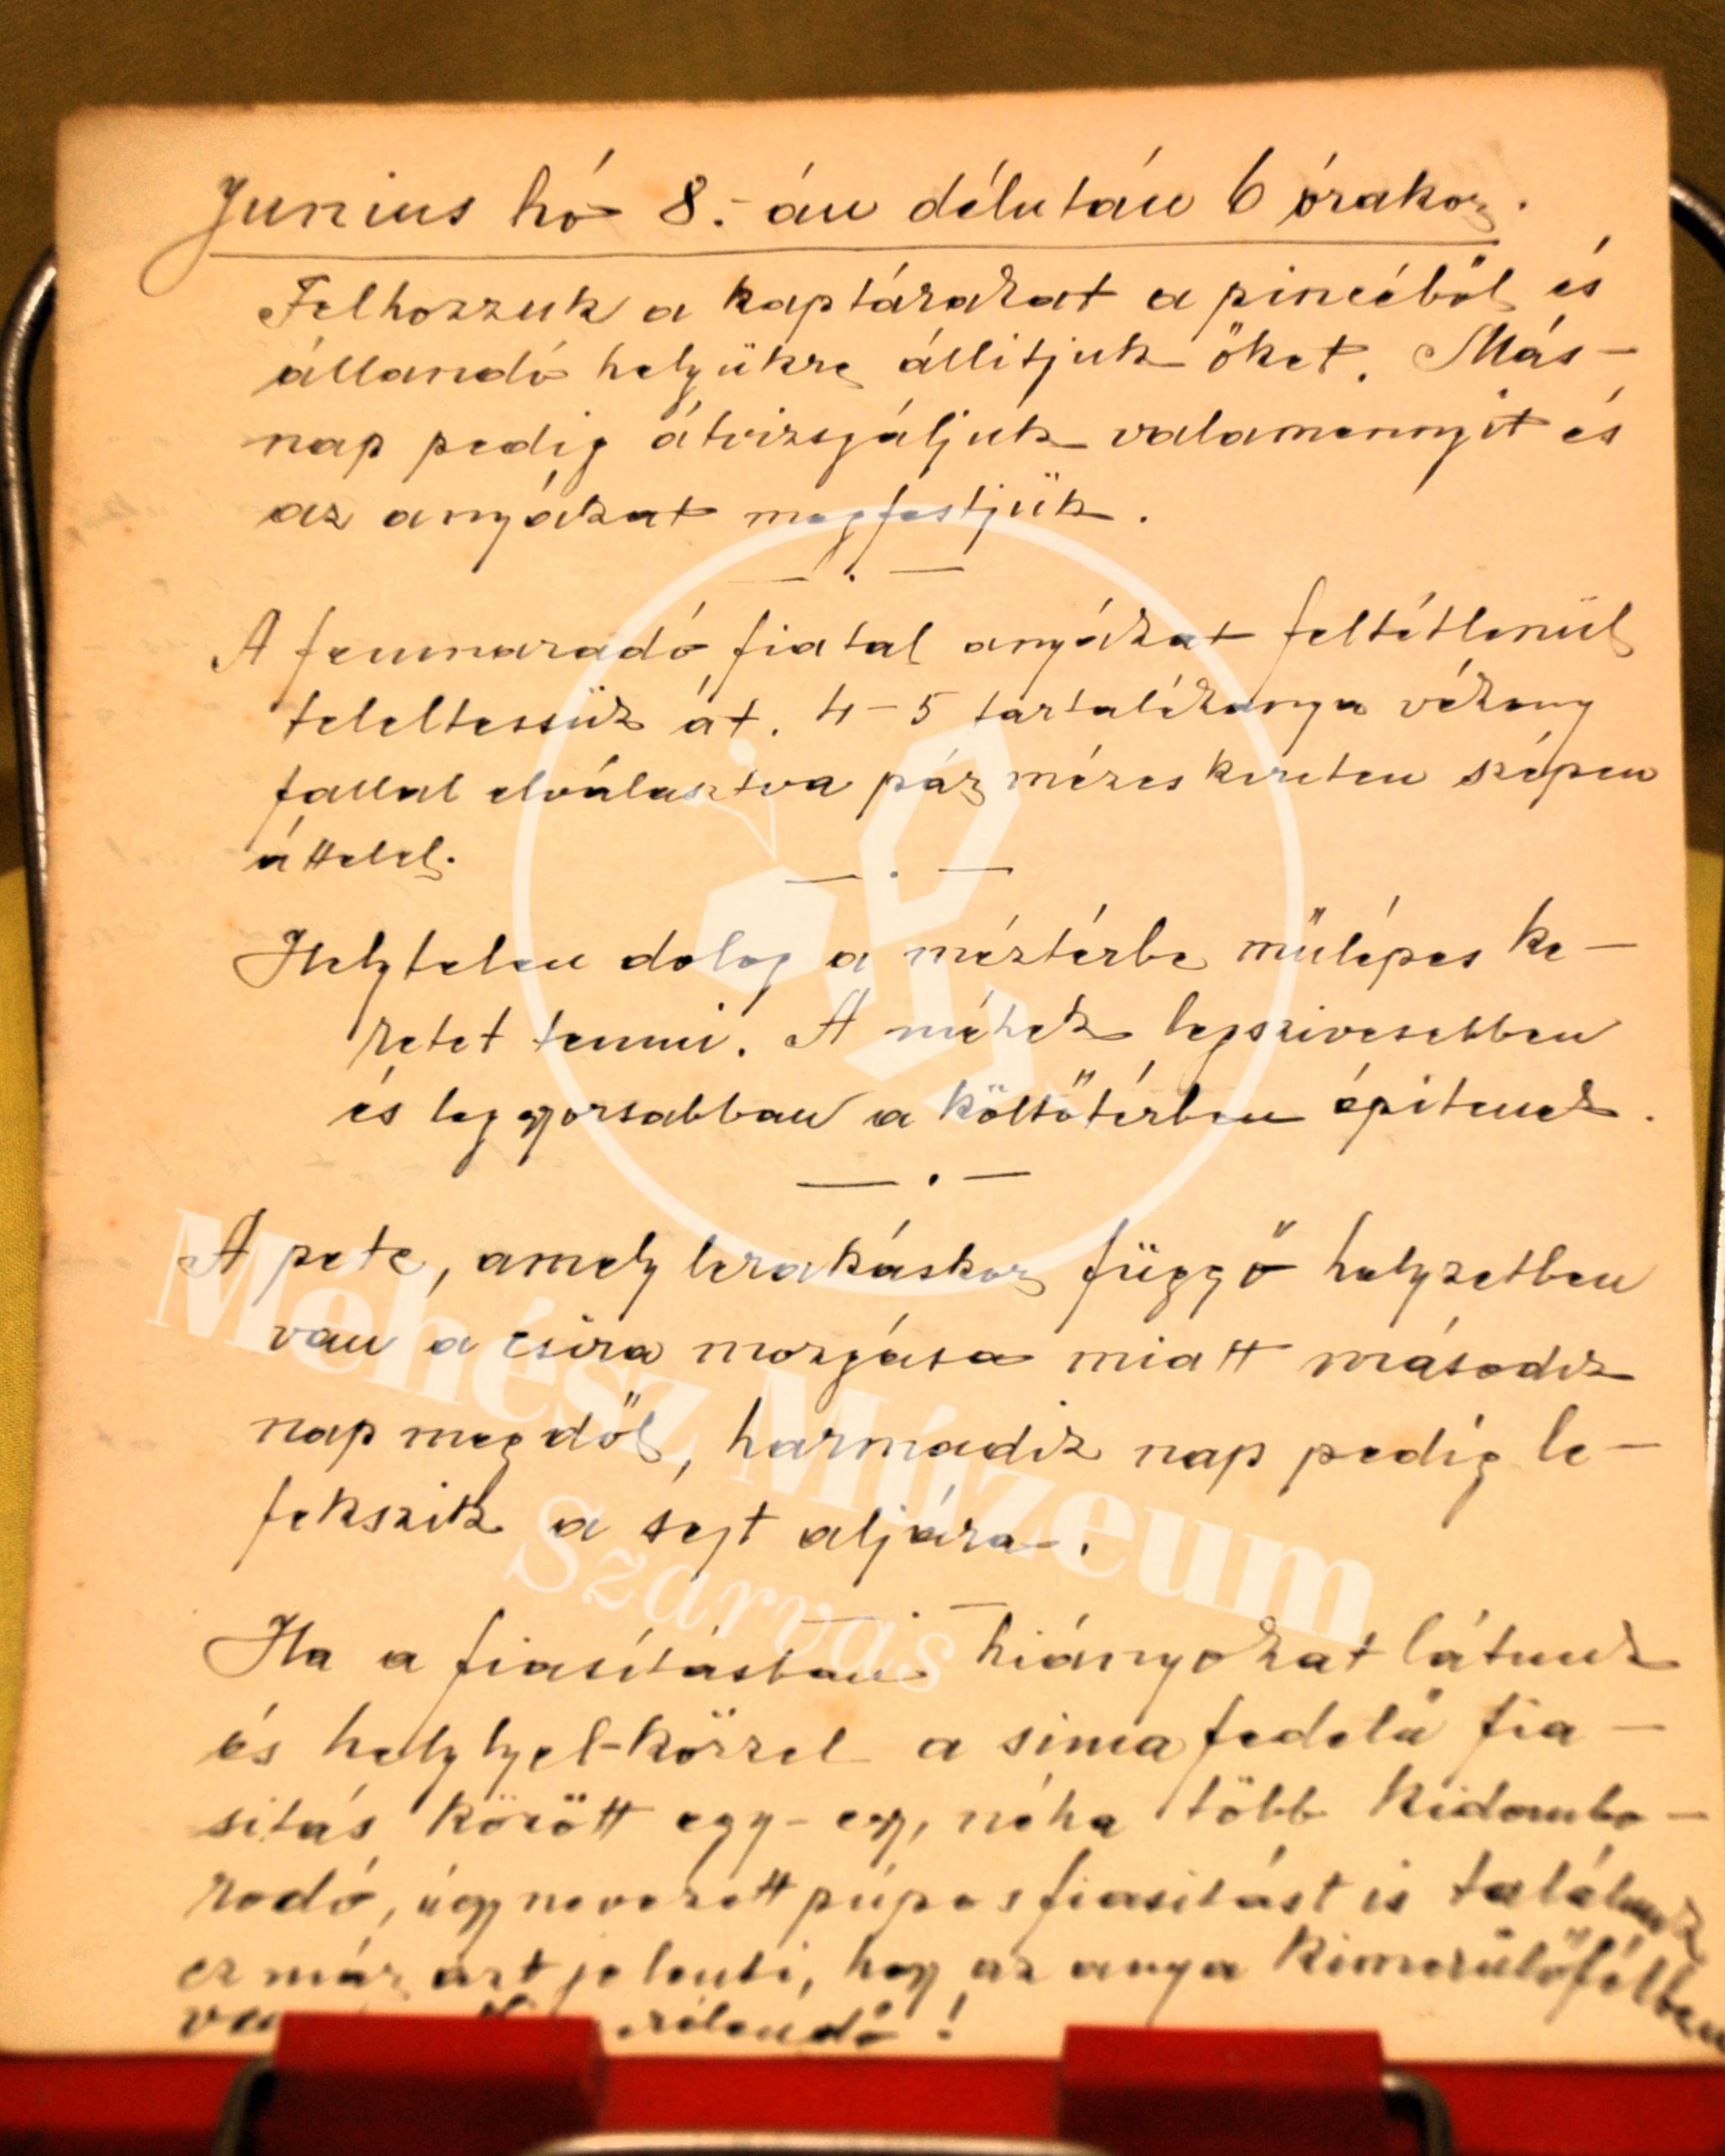 Junius hó 8.-án délután 6 órakor.
Felhozzuk a kaptárakat a pincéből és
állandó helyükre állitjuk őket. Más-
nap pedig átvizsgáljuk valamennyit és
az anyákat megfestjük.
— . —
A fennmaradó fiatal anyákat feltétlenül
teleltessük át. 4-5 tartalékanya vékony
fallal elválasztva pár mézes kereten szépen
áttelel.
— . —
Helytelen dolog a méztérbe műlépes ke-
retet tenni. A méhek legszivesebben
és leggyorsabban a költőtérben épitenek.
— . —
A pete, amely lerakáskor függő helyzetben
van a csira mozgása miatt második
nap megdől, harmadik nap pedig le-
fekszik a sejt aljára.
— . —
Ha a fiasításban hiányokat látunk
és helylyel-közzel a sima fedelű fia-
sitás között egy-egy, néha több kidombo-
rodó, úgynevezett púpos fiasitást is találunk
ez már azt jelenti, hogy az anya kimerülőfélben
Méhész Múzeum
Szarvas